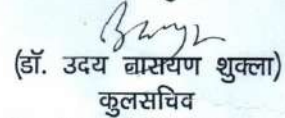 (डॉ. उदय नारायण शुक्ला)
कुलसचिव